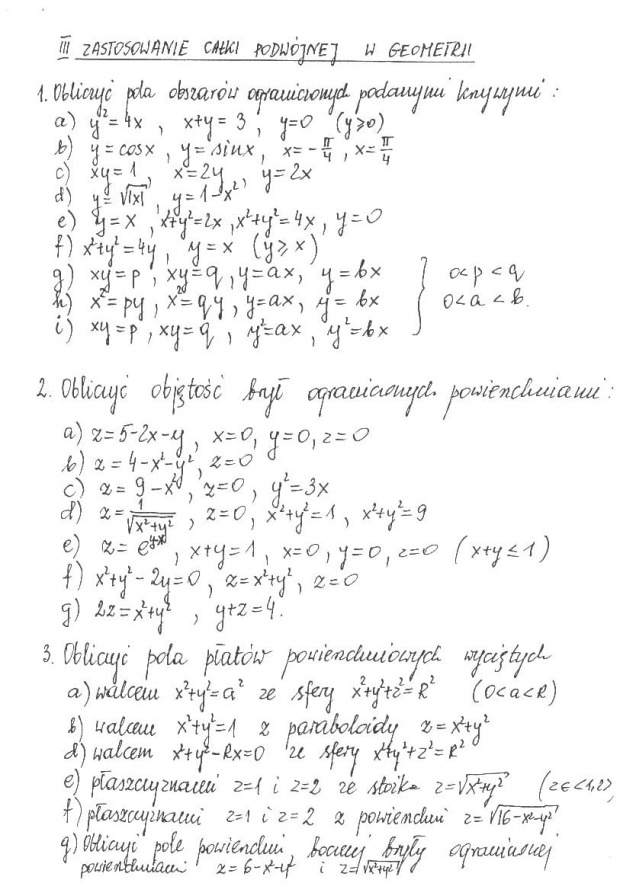 III ZASTOSOWANIE CAŁKI PODWÓJNEJ W GEOMETRII
1. Obliczyć pola obszarów ograniczonych podanymi krzywymi :
a) y²=4x , x+y = 3 , y=0 (y≥0)
b) y=cosx , y=sinx, x=-π/4 , x=π/4
c) xy=1 , x=2y , y=2x
d) y=√|x| , y=1-x²
e) y=x , x²+y²=2x , x²+y²=4x , y=0
f) x²+y²=4y , y=x (y≥x)
g) xy=p , xy=q , y=ax, y=bx } 0<p<q
h) x²=py , x²=qy , y=ax, y=bx 0<a<b.
i) xy=p , xy=q , y²=ax , y²=bx
2. Obliczyć objętość brył ograniczonych powierzchniami :
a) z=5-2x-y , x=0, y=0, z=0
b) z=4-x²-y² , z=0
c) z=9-x² , z=0 , y²=3x
d) z=1/√(x²+y²) , z=0, x²+y²=1 , x²+y²=9
e) , x+y=1 , x=0, y=0, z=0 (x+y≤1)
f) x²+y²-2y=0 , z=x²+y² , z=0
g) 2z=x²+y² , y+z=4.
3. Obliczyć pola płatów powierzchniowych wyciętych
a) walcem x²+y²=a² ze sfery x²+y²+z²=R² (0<a<R)
b) walcem x²+y²=1 z paraboloidy z=x²+y²
d) walcem x²+y²-Rx=0 ze sfery x²+y²+z²=R²
e) płaszczyznami z=1 i z=2 ze stożka z=√(x²+y²) (z∈<1,2>)
f) płaszczyznami z=1 i z=2 z powierzchni z=√(16-x²-y²)
g) Obliczyć pole powierzchni bocznej bryły ograniczonej
powierzchniami z=6-x²-y² i z=√(x²+y²)